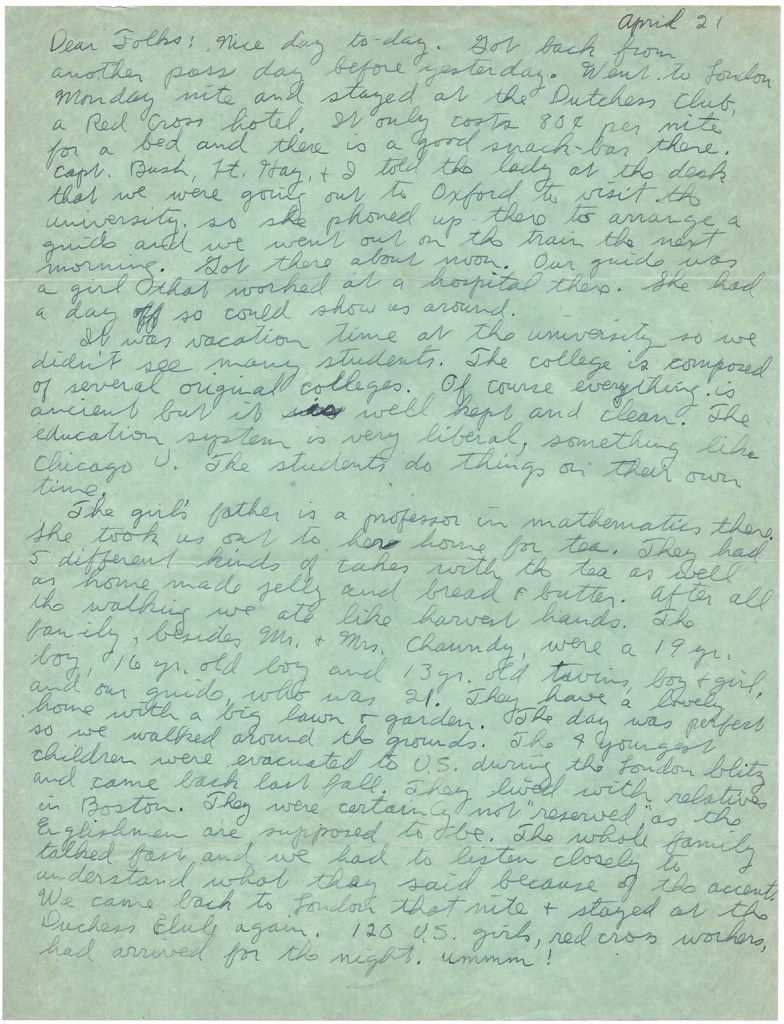 April 21
Dear Folks: Nice day to-day. Got back from
another pass day before yesterday. Went to London
Monday nite and stayed at the Dutchess Club,
a Red Cross hotel. It only costs 80¢ per nite
for a bed and there is a good snack-bar there.
Capt. Bush, Lt. Hay, & I told the lady at the desk
that we were going out to Oxford to visit the
university, so she phoned up there to arrange a
guide and we went out on the train the next
morning. Got there about noon. Our guide was
a girl that worked at a hospital there. She had
a day off so could show us around.
It was vacation time at the university so we
didn't see many students. The college is composed
of several original colleges. Of course everything is
ancient but it is well kept and clean. The
education system is very liberal, something like
Chicago U. The students do things on their own
time.
The girl's father is a professor in mathematics there.
She took us out to her home for tea. They had
5 different kinds of cakes with the tea as well
as home made jelly and bread & butter. After all
the walking we ate like harvest hands. The
family, besides Mr. & Mrs. Chaundy, were a 19 yr.
boy, 16 yr. old boy and 13 yr. old twins, boy & girl,
and our guide, who was 21. They have a lovely
home with a big lawn & garden. The day was perfect
so we walked around the grounds. The 4 youngest
children were evacuated to U.S. during the London blitz
and came back last fall. They lived with relatives
in Boston. They were certainly not "reserved" as the
Englishmen are supposed to be. The whole family
talked fast and we had to listen closely to
understand what they said because of the accent.
We came back to London that nite & stayed at the
Duchess Club again. 120 U.S. girls, red cross workers,
had arrived for the night. ummm!